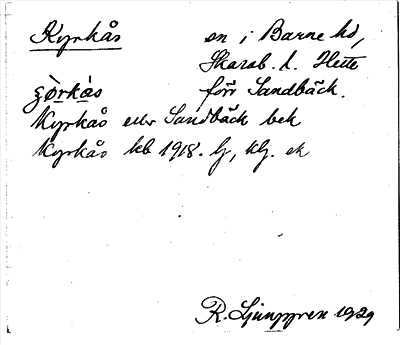 Kyrkås sn i Barne hd,
Skarab. l. Hette
z̧òrkås förr Sandbäck.
Kyrkås eller Sandbäck bek
Kyrkås kb 1918. lj, klj. ek
R. Ljunggren 1929